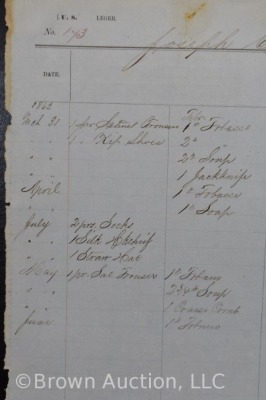 U. S. LEGER.
No. 173 Joseph
DATE.
Mch 31 1 pr Satinet Trousers 1lb Tobacco
1 " Kip Shoes 2lb "
2lb Soap
1 Jackknife
April 1lb Tobacco
" " 1lb Soap
July 2 prs. Socks
" " 1 Silk Hdkchief
" " 1 Straw Hat
May 1 pr. Sat Trousers 1lb Tobacco
" " Soap
" " 1 Coarse Comb
June 1lb Tobacco
© Brown Auction, LLC